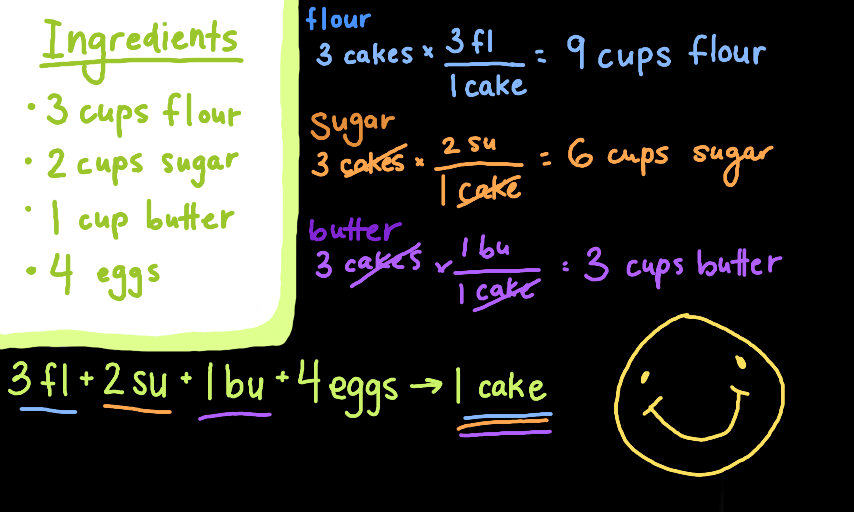 Ingredients
• 3 cups flour
• 2 cups sugar
• 1 cup butter
• 4 eggs
flour
3 cakes × 3 fl / 1 cake = 9 cups flour
sugar
3 cakes × 2 su / 1 cake = 6 cups sugar
butter
3 cakes × 1 bu / 1 cake = 3 cups butter
3 fl + 2 su + 1 bu + 4 eggs → 1 cake